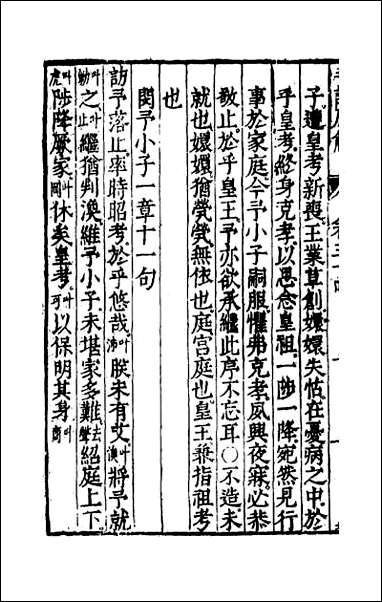 子遭皇考新喪王業草創嬛嬛失怙在憂病之中於
乎皇考終身克孝以思念皇祖一陟一降宛然見行
事於家庭今予小子嗣服懼弗克孝夙興夜寐必恭
敬止於乎皇王予亦欲承繼此序不忘耳〇不造未
就也嬛嬛猶煢煢無依也庭宮庭也皇王兼指祖考
也
閔予小子一章十一句
訪予落止率時昭考於乎悠哉朕未有艾將予就
之繼猶判渙維予小子未堪家多難紹庭上下
陟降厥家休矣皇考以保明其身